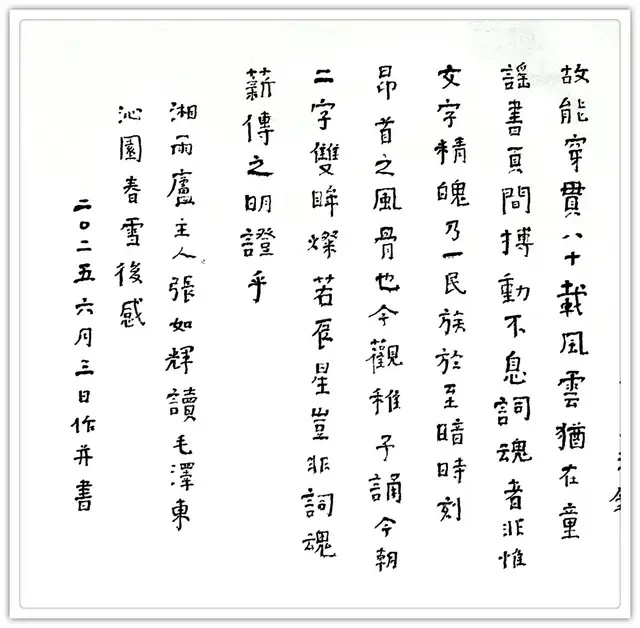 故能穿貫八十載風雲猶在童
謠書頁間搏動不息詞魂者非惟
文字精魄乃一民族於至暗時刻
昂首之風骨也今觀稚子誦今朝
二字雙眸燦若辰星豈非詞魂
薪傳之明證乎
湘雨廬主人張如輝讀毛澤東
沁園春雪後感
二〇二五六月三日作并書